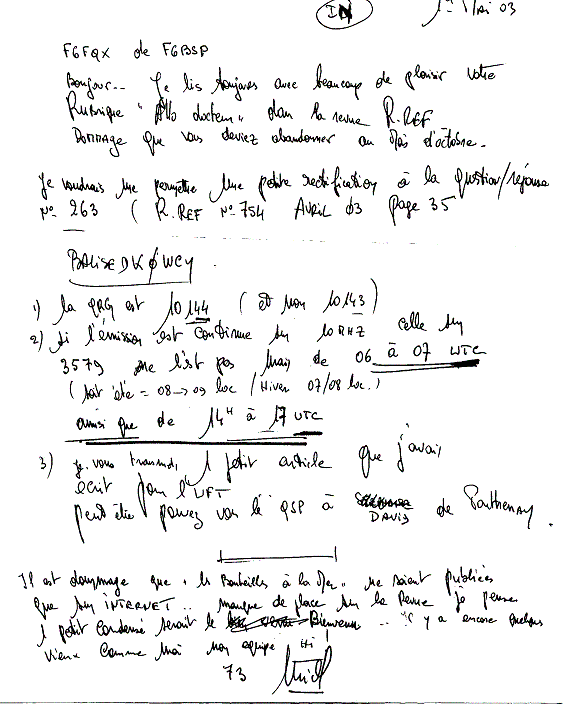 IN
1er Mai 03
F6FQX de F6BSP
Bonjour.. Je lis toujours avec beaucoup de plaisir votre
Rubrique "Allo docteur" dans la revue R.REF
DOMMAGE que vous deviez abandonner au Mois d'octobre.
Je voudrais me permettre une petite rectification à la question/réponse
N° 263 ( R.REF N° 754 AVRIL 03 page 35
BALISE DKØWCY.
1) la QRG est 10144 ( et non 10143 )
2) Si l'émission est continue sur 10 MHZ celle sur
3579 ne l'est pas mais de 06 à 07 UTC
( soit été = 08→09 loc / Hiver 07/08 loc. )
ainsi que de 14H à 17 UTC
3) je vous transmet 1 petit article que j'avais
écrit pour l'UFT
peut être pouvez voir le QSP à DAVIS de Parthenay.
Il est dommage que "les Bouteilles à la Mer" ne soient publiées
que sur INTERNET.. manque de place sur la Revue je pense
1 petit condensé serait le Bienvenu .. il y a encore quelques
vieux comme moi non équipé Hi !
73